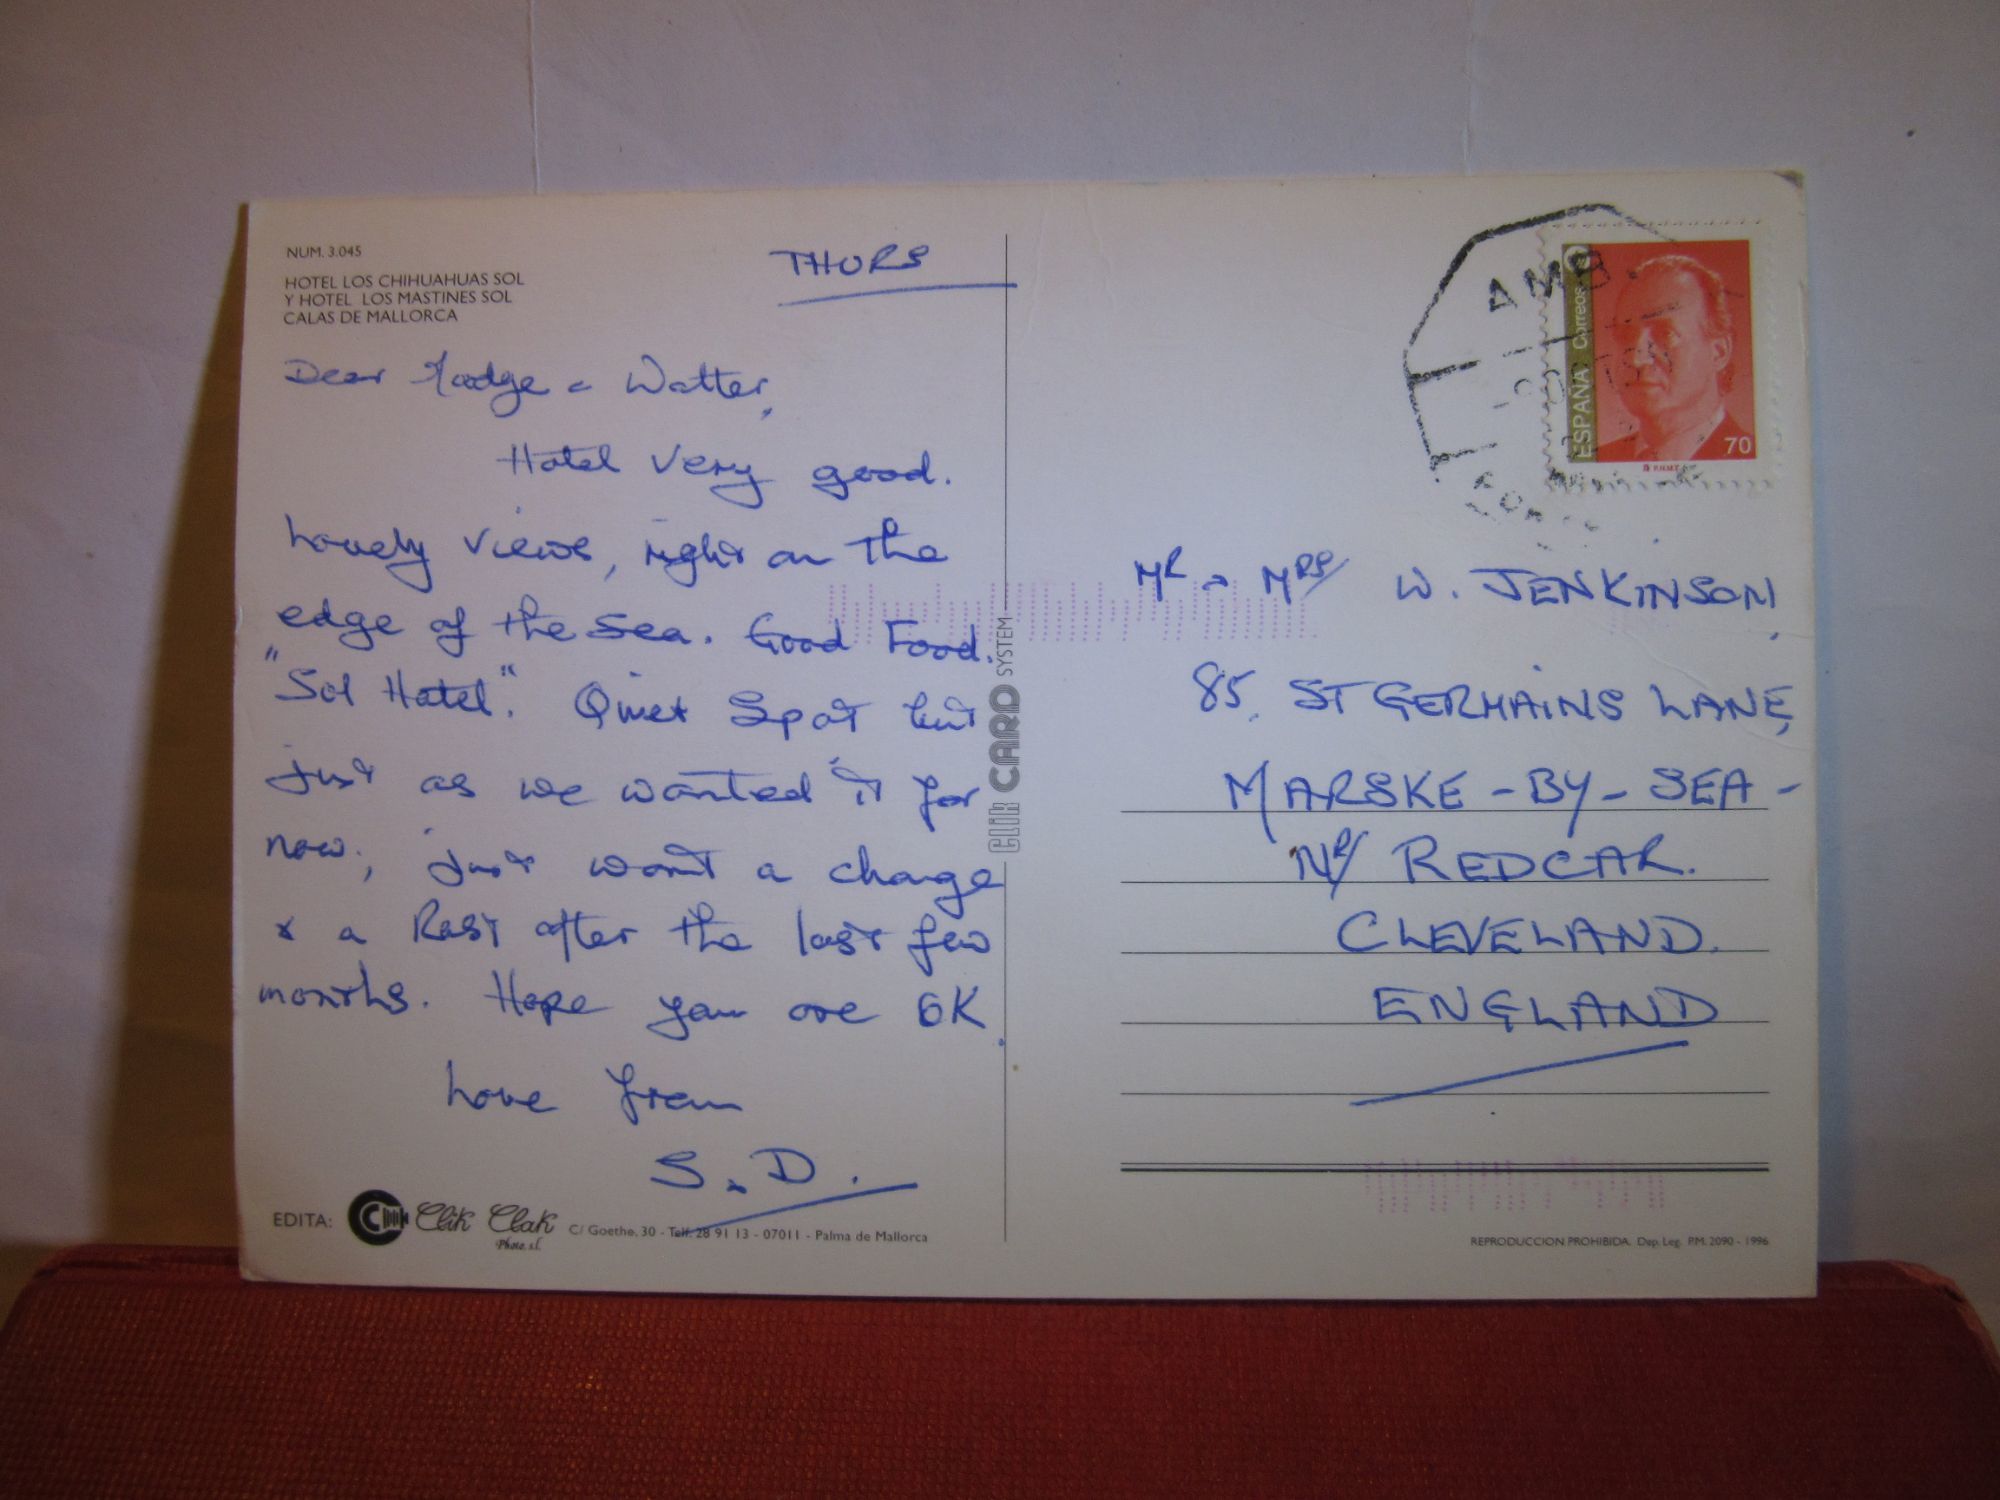 NUM. 3.045
HOTEL LOS CHIHUAHUAS SOL
Y HOTEL LOS MASTINES SOL
CALAS DE MALLORCA
THURS
Dear Madge & Walter,
Hotel very good.
Lovely views, right on the
edge of the sea. Good Food.
"Sol Hotel". Quiet Spot but
just as we wanted it for
now, just want a change
& a Rest after the last few
months. Hope you are OK.
Love from
S. D.
EDITA: Clik Clak
Photo, s.l.
C/ Goethe, 30 - Telf. 28 91 13 - 07011 - Palma de Mallorca
Clik CARD SYSTEM
AMB.
ESPAÑA Correos
70
F.N.M.T.
MR & MRS W. JENKINSON,
85, ST GERMAINS LANE,
MARSKE-BY-SEA-
NR/ REDCAR.
CLEVELAND.
ENGLAND
REPRODUCCION PROHIBIDA. Dep. Leg. P.M. 2090 - 1996